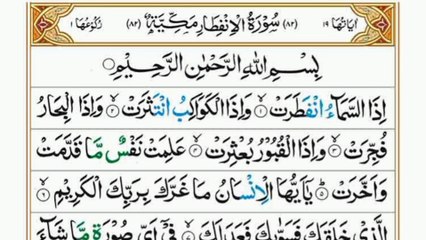 اٰيَاتُهَا ١٩ (٨٢) سُوْرَةُ الْاِنْفِطَارِ مَكِّيَّةٌ (٨٢) رُكُوْعُهَا ١
بِسْمِ اللّٰهِ الرَّحْمٰنِ الرَّحِيْمِ
اِذَا السَّمَآءُ انْفَطَرَتْ ۙ‏﴿۱﴾ وَاِذَا الْكَوَاكِبُ انْتَثَرَتْ ۙ‏﴿۲﴾ وَاِذَا الْبِحَارُ
فُجِّرَتْ ۙ‏﴿۳﴾ وَاِذَا الْقُبُوْرُ بُعْثِرَتْ ۙ‏﴿۴﴾ عَلِمَتْ نَفْسٌ مَّا قَدَّمَتْ
وَاَخَّرَتْ ؕ‏﴿۵﴾ يٰۤاَيُّهَا الْاِنْسَانُ مَا غَرَّكَ بِرَبِّكَ الْكَرِيْمِ ۙ‏﴿۶﴾
الَّذِىْ خَلَقَكَ فَسَوّٰٮكَ فَعَدَلَكَ ۙ‏﴿۷﴾ فِىْۤ اَىِّ صُوْرَةٍ مَّا شَآءَ